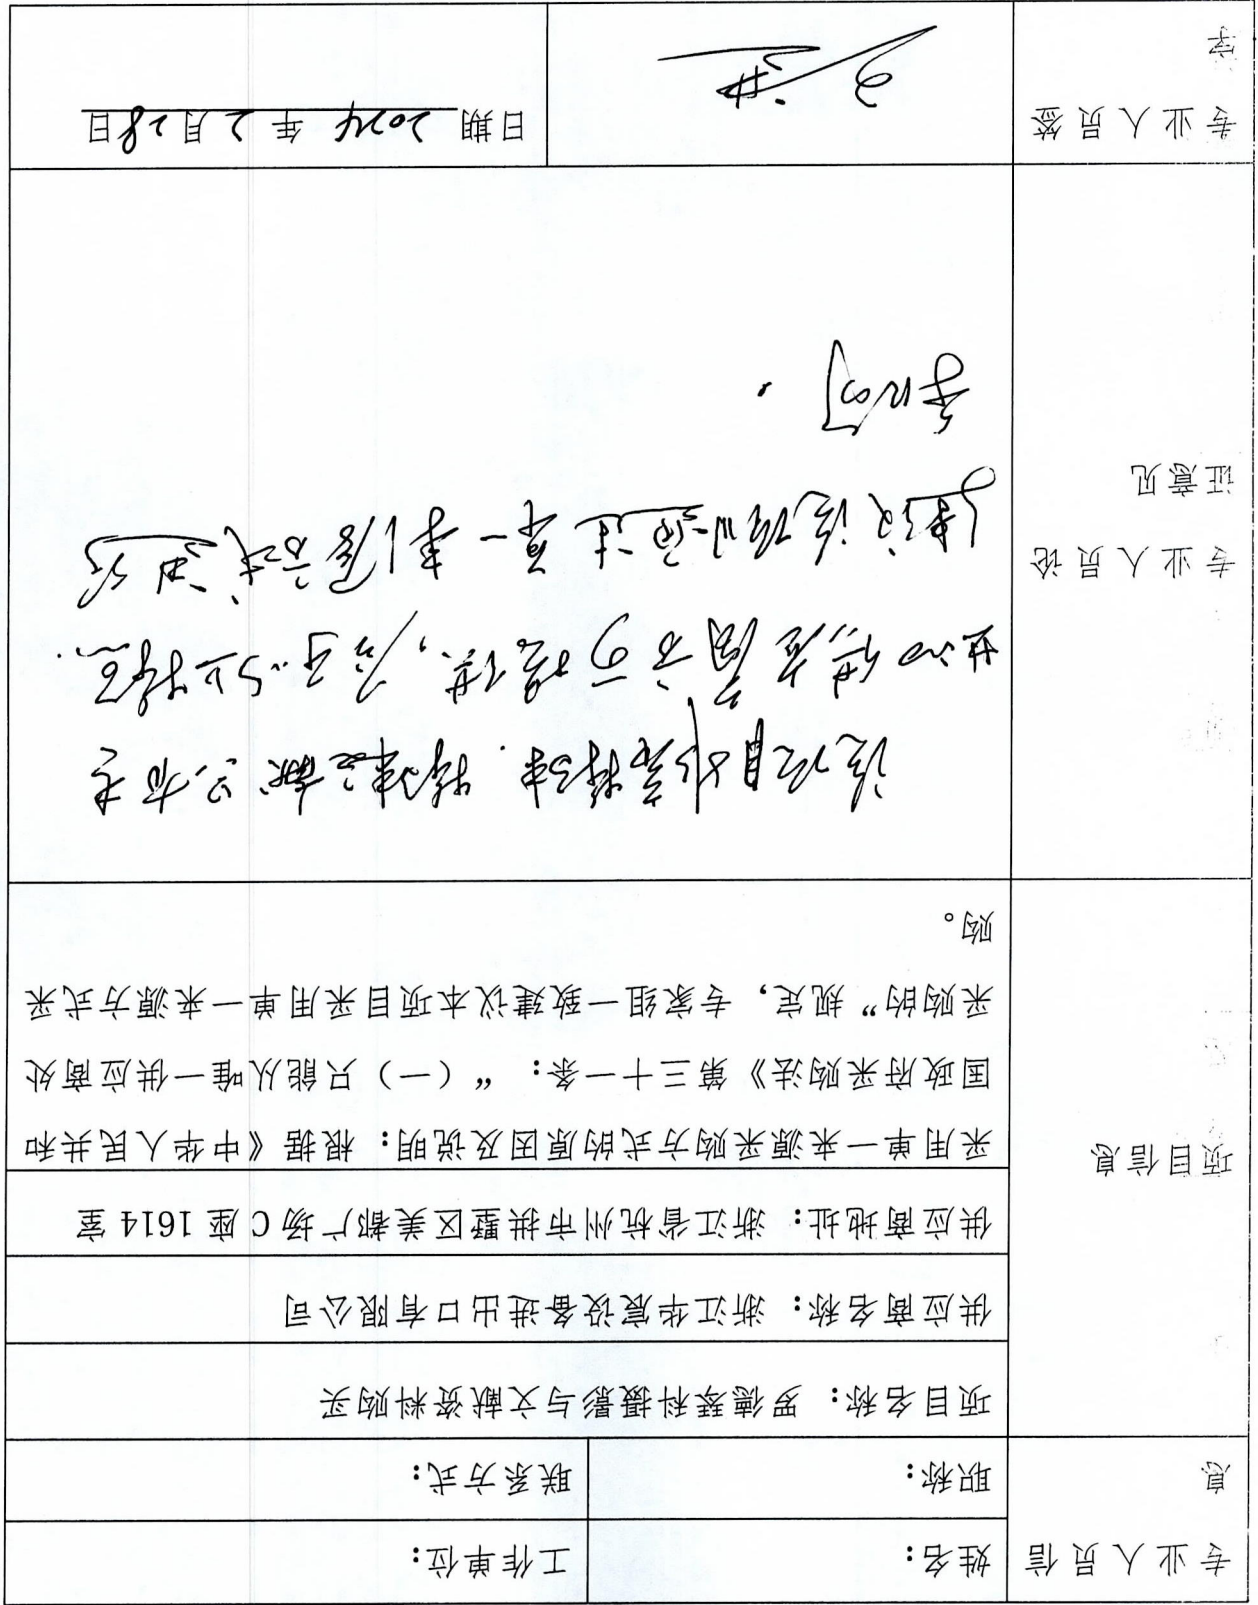 专业人员信息
姓名：
工作单位：
职称：
联系方式：
项目信息
项目名称：罗德琴科摄影与文献资料购买
供应商名称：浙江华宸设备进出口有限公司
供应商地址：浙江省杭州市拱墅区美都广场C座1614室
采用单一来源采购方式的原因及说明：根据《中华人民共和
国政府采购法》第三十一条：“（一）只能从唯一供应商处
采购的”规定，专家组一致建议本项目采用单一来源方式采
购。
专业人员论
证意见
该项目非常特殊.特殊文献只有老
供应商方可提供,
建议该项目通过单一来源方式
专业人员签
字
日期 2024 年 2 月 28 日